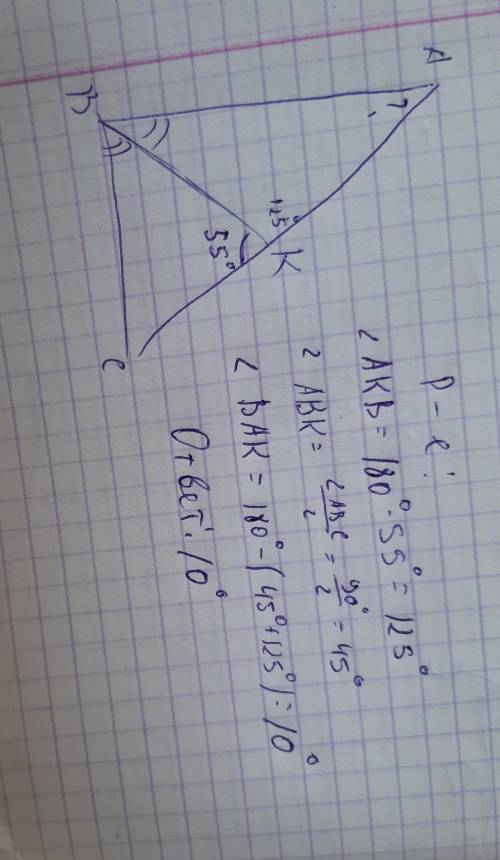 A
?
B
125°
K
55°
C
Р-е:
∠AKB = 180° - 55° = 125°
∠ABK = ∠ABC/2 = 90°/2 = 45°
∠BAK = 180° - (45° + 125°) = 10°
Ответ: 10°